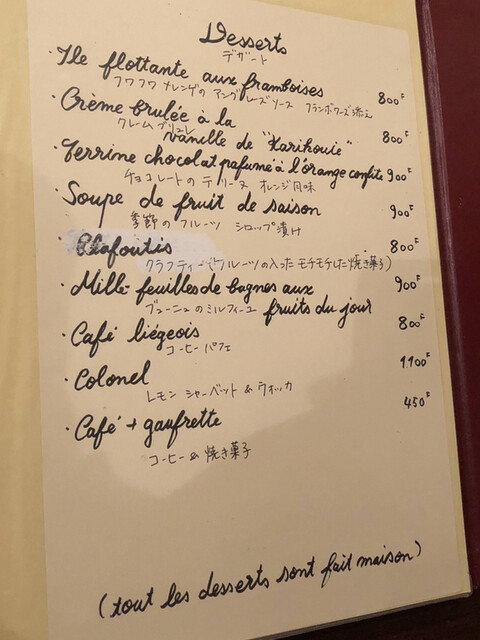 Desserts
デザート
· Ile flottante aux framboises 800F
フワフワ メレンゲの アングレーズソース フランボワーズ添え
· Crème brulée à la
クレームブリュレ
vanille de "Karikouie" 800F
· Terrine chocolat pafumé à l'orange confite 900F
チョコレートの テリーヌ オレンジ風味
· Soupe de fruit de saison 900F
季節の フルーツ シロップ漬け
· Clafoutis 800F
クラフティー (フルーツの入った モチモチした焼き菓子)
· Mille feuilles de bagnes aux 900F
ブューニュの ミルフィーユ fruits du jour
· Café liégeois 800F
コーヒー パフェ
· Colonel 1100F
レモン シャーベット & ウォッカ
· Café + gaufrette 450F
コーヒー & 焼き菓子
(tout les desserts sont fait maison)